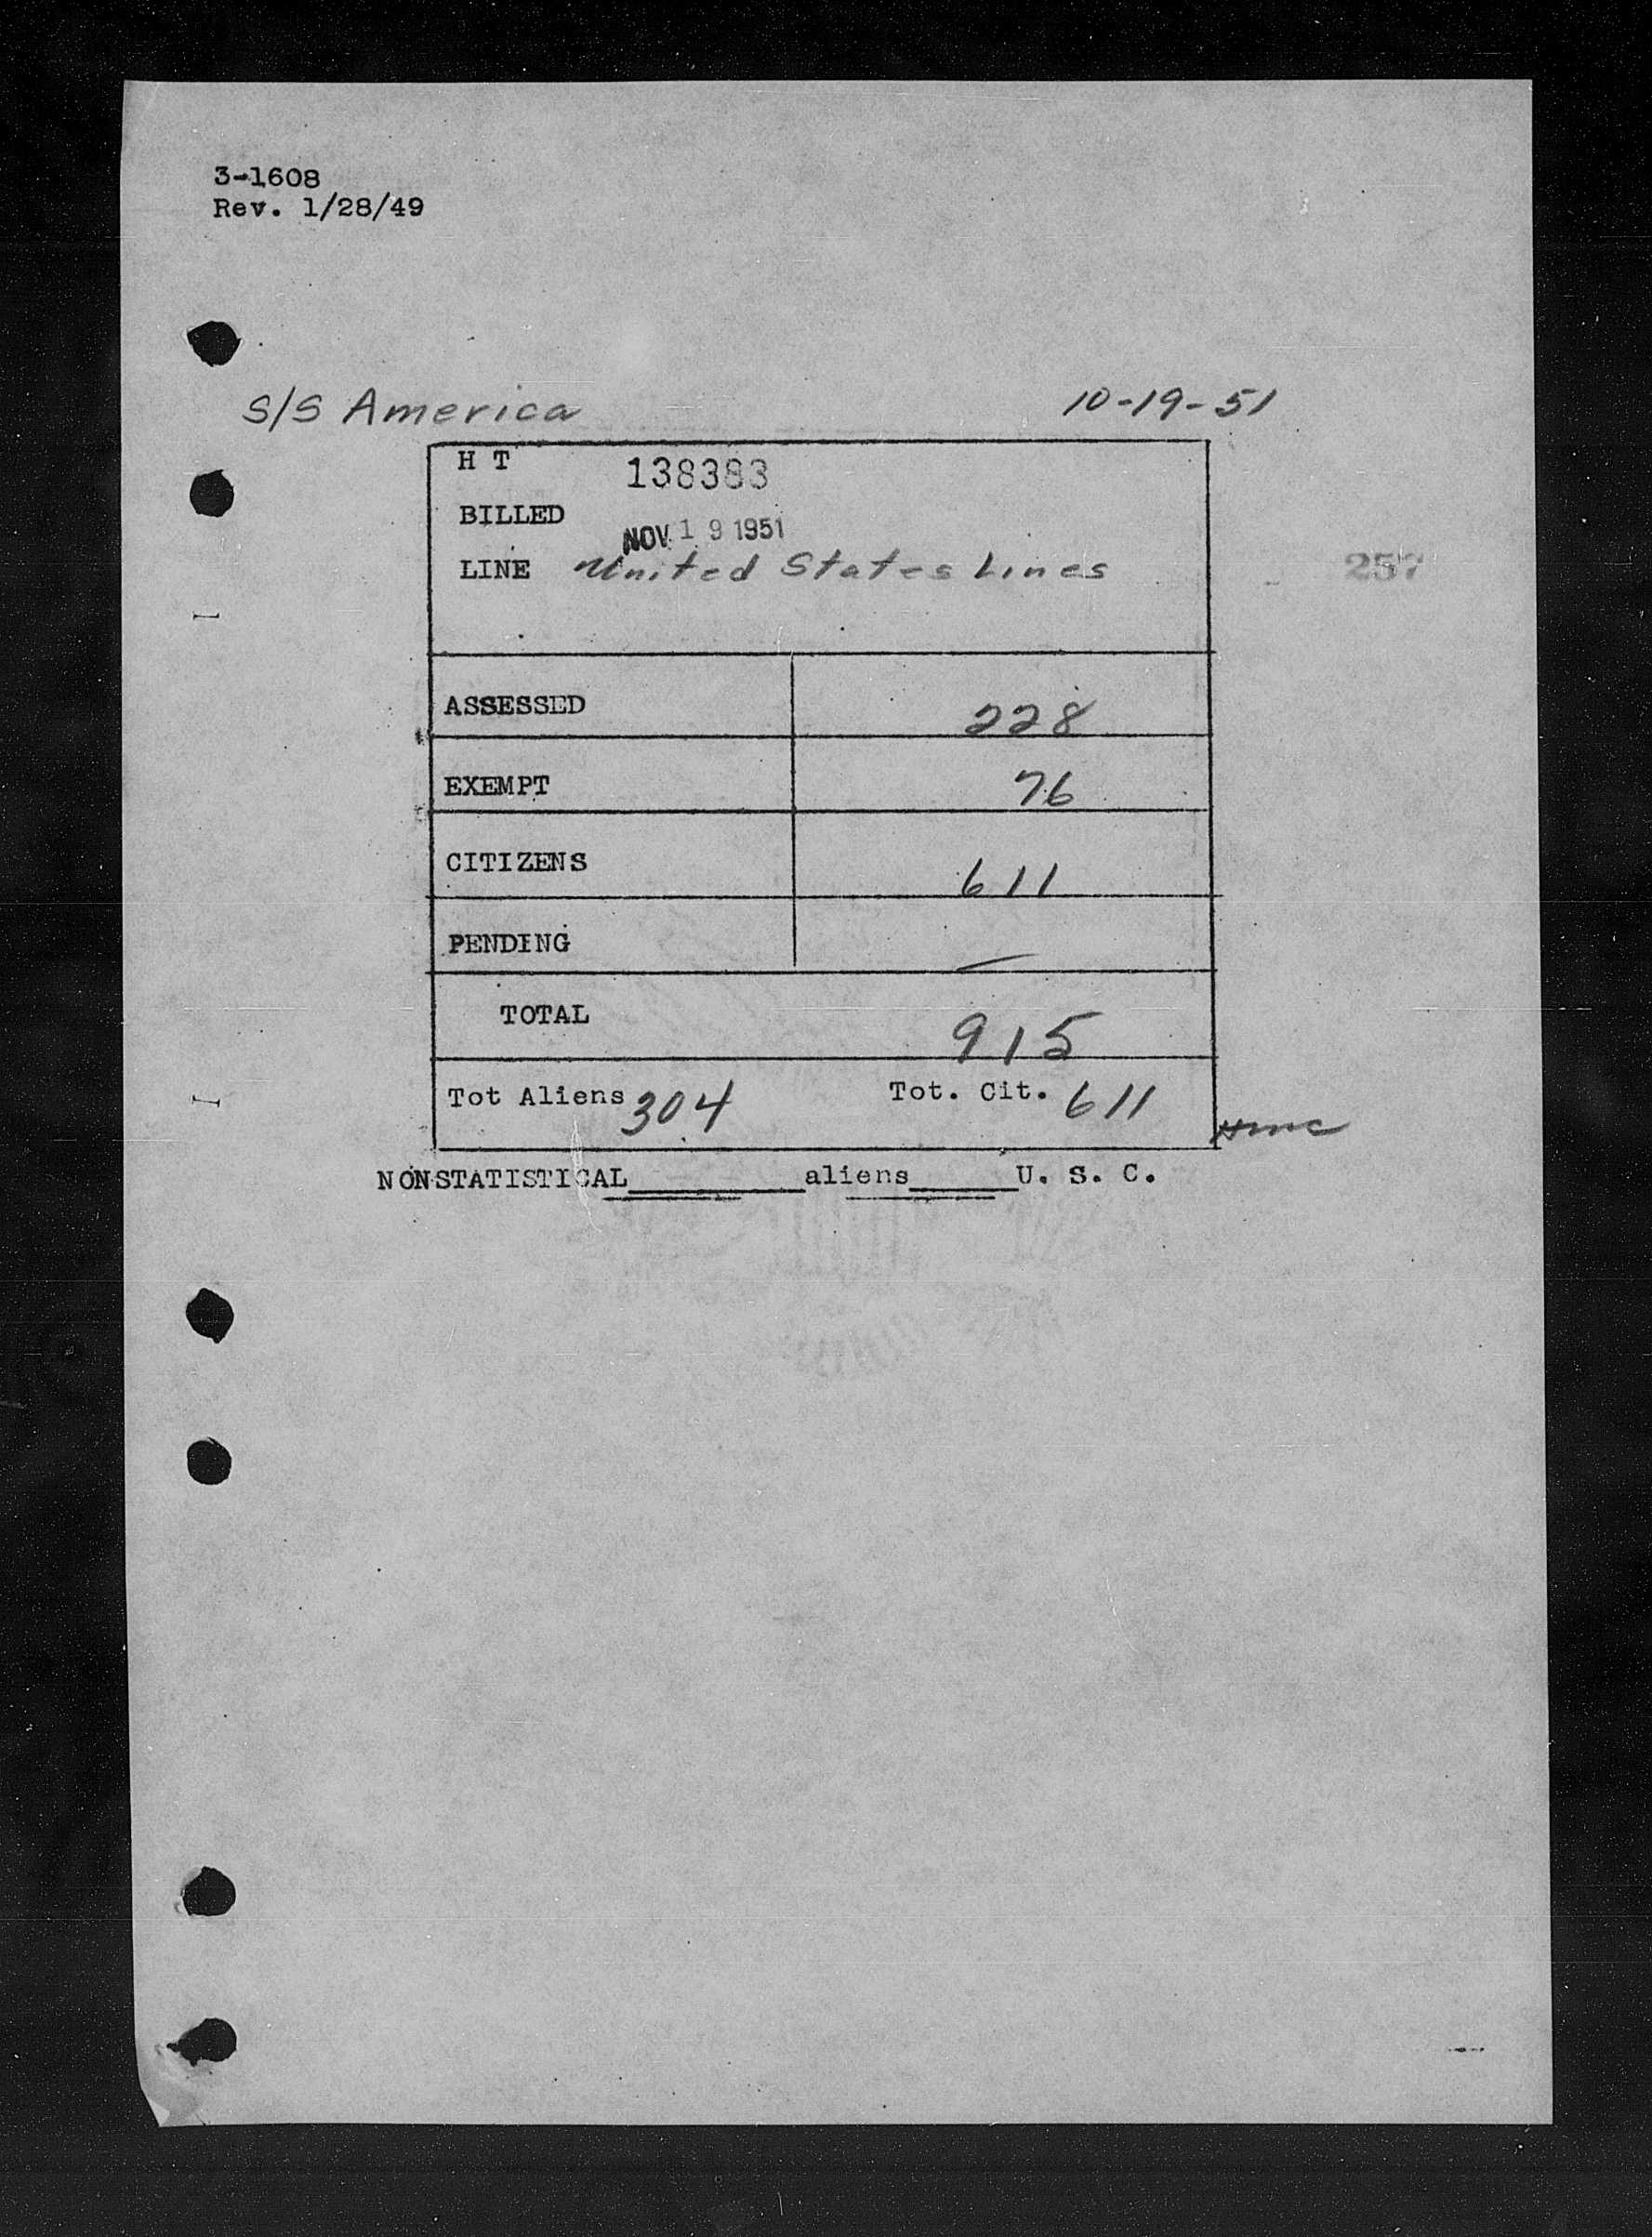 3-1608
Rev. 1/28/49
S/S America 10-19-51
H T 138383
BILLED NOV 19 1951
LINE United States Lines
257
ASSESSED 228
EXEMPT 76
CITIZENS 611
PENDING —
TOTAL 915
Tot Aliens 304 Tot. Cit. 611
NONSTATISTICAL__________aliens______U. S. C.